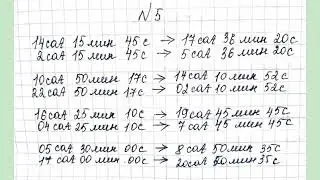 №5
14 сағ 15 мин 45 с → 17 сағ 36 мин 20 с
2 сағ 15 мин 45 с → 5 сағ 36 мин 20 с
10 сағ 50 мин 17 с → 14 сағ 10 мин 52 с
22 сағ 50 мин 17 с → 02 сағ 10 мин 52 с
16 сағ 25 мин 10 с → 19 сағ 45 мин 45 с
04 сағ 25 мин 10 с → 7 сағ 45 мин 45 с
05 сағ 30 мин 00 с → 8 сағ 50 мин 35 с
17 сағ 00 мин 00 с → 20 сағ 50 мин 35 с